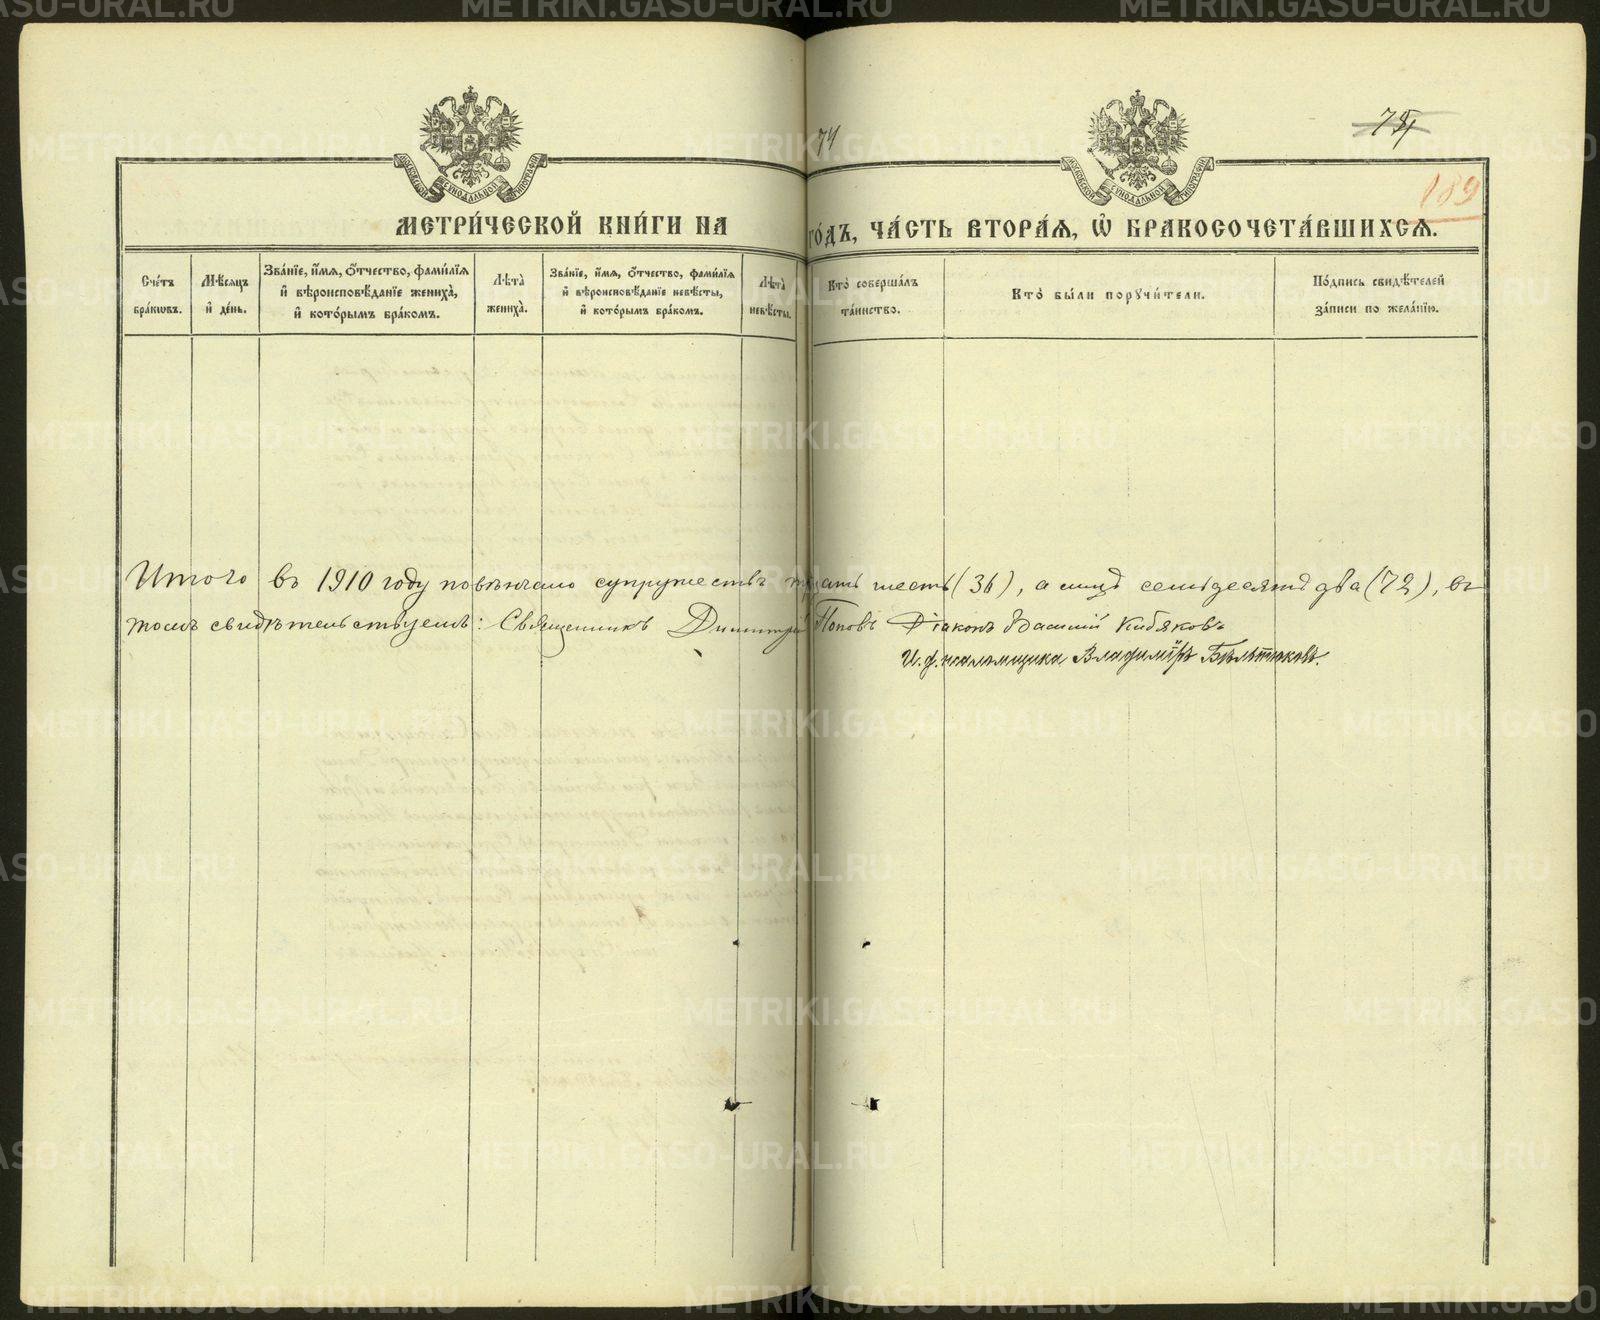 74
75
189
МОСКОВСКОЙ СѴНОДАЛЬНОЙ ТИПОГРАФІИ
МОСКОВСКОЙ СѴНОДАЛЬНОЙ ТИПОГРАФІИ
МЕТРИ́ЧЕСКОЙ КНИ́ГИ НА ГО́ДЪ, ЧА́СТЬ ВТОРА́Я, Ѡ҆ БРАКОСОЧЕТА́ВШИХСЯ.
Сче́тъ бра́кѡвъ.
Мѣ́сяцъ и҆ де́нь.
Зва́нїе, и҆́мя, ѻ҆́тчество, фами́лїя и҆ вѣроисповѣ́данїе жениха̀, и҆ кото́рымъ бра́комъ.
Лѣ́та жениха̀.
Зва́нїе, и҆́мя, ѻ҆́тчество, фами́лїя и҆ вѣроисповѣ́данїе невѣ́сты, и҆ кото́рымъ бра́комъ.
Лѣ́та невѣ́сты.
Кто̀ соверша́лъ та́инство.
Кто̀ бы́ли порꙋчи́тели.
По́дпись свидѣ́телей за́писи по жела́нїю.
Итого въ 1910 году повѣнчано супружествъ тридцать шесть (36), а лицъ семьдесятъ два (72), въ
томъ свидѣтельствуемъ: Священникъ Димитрій Поповъ Діаконъ Василій Кибяковъ
И. д. псаломщика Владиміръ Бѣльтюковъ.
METRIKI.GASO-URAL.RU